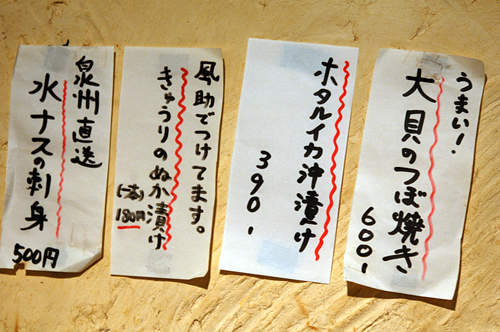 うまい!
大貝のつぼ焼き
600-
ホタルイカ沖漬け
390-
風助でつけてます。
きゅうりのぬか漬け
180円
泉州直送
水ナスの刺身
500円